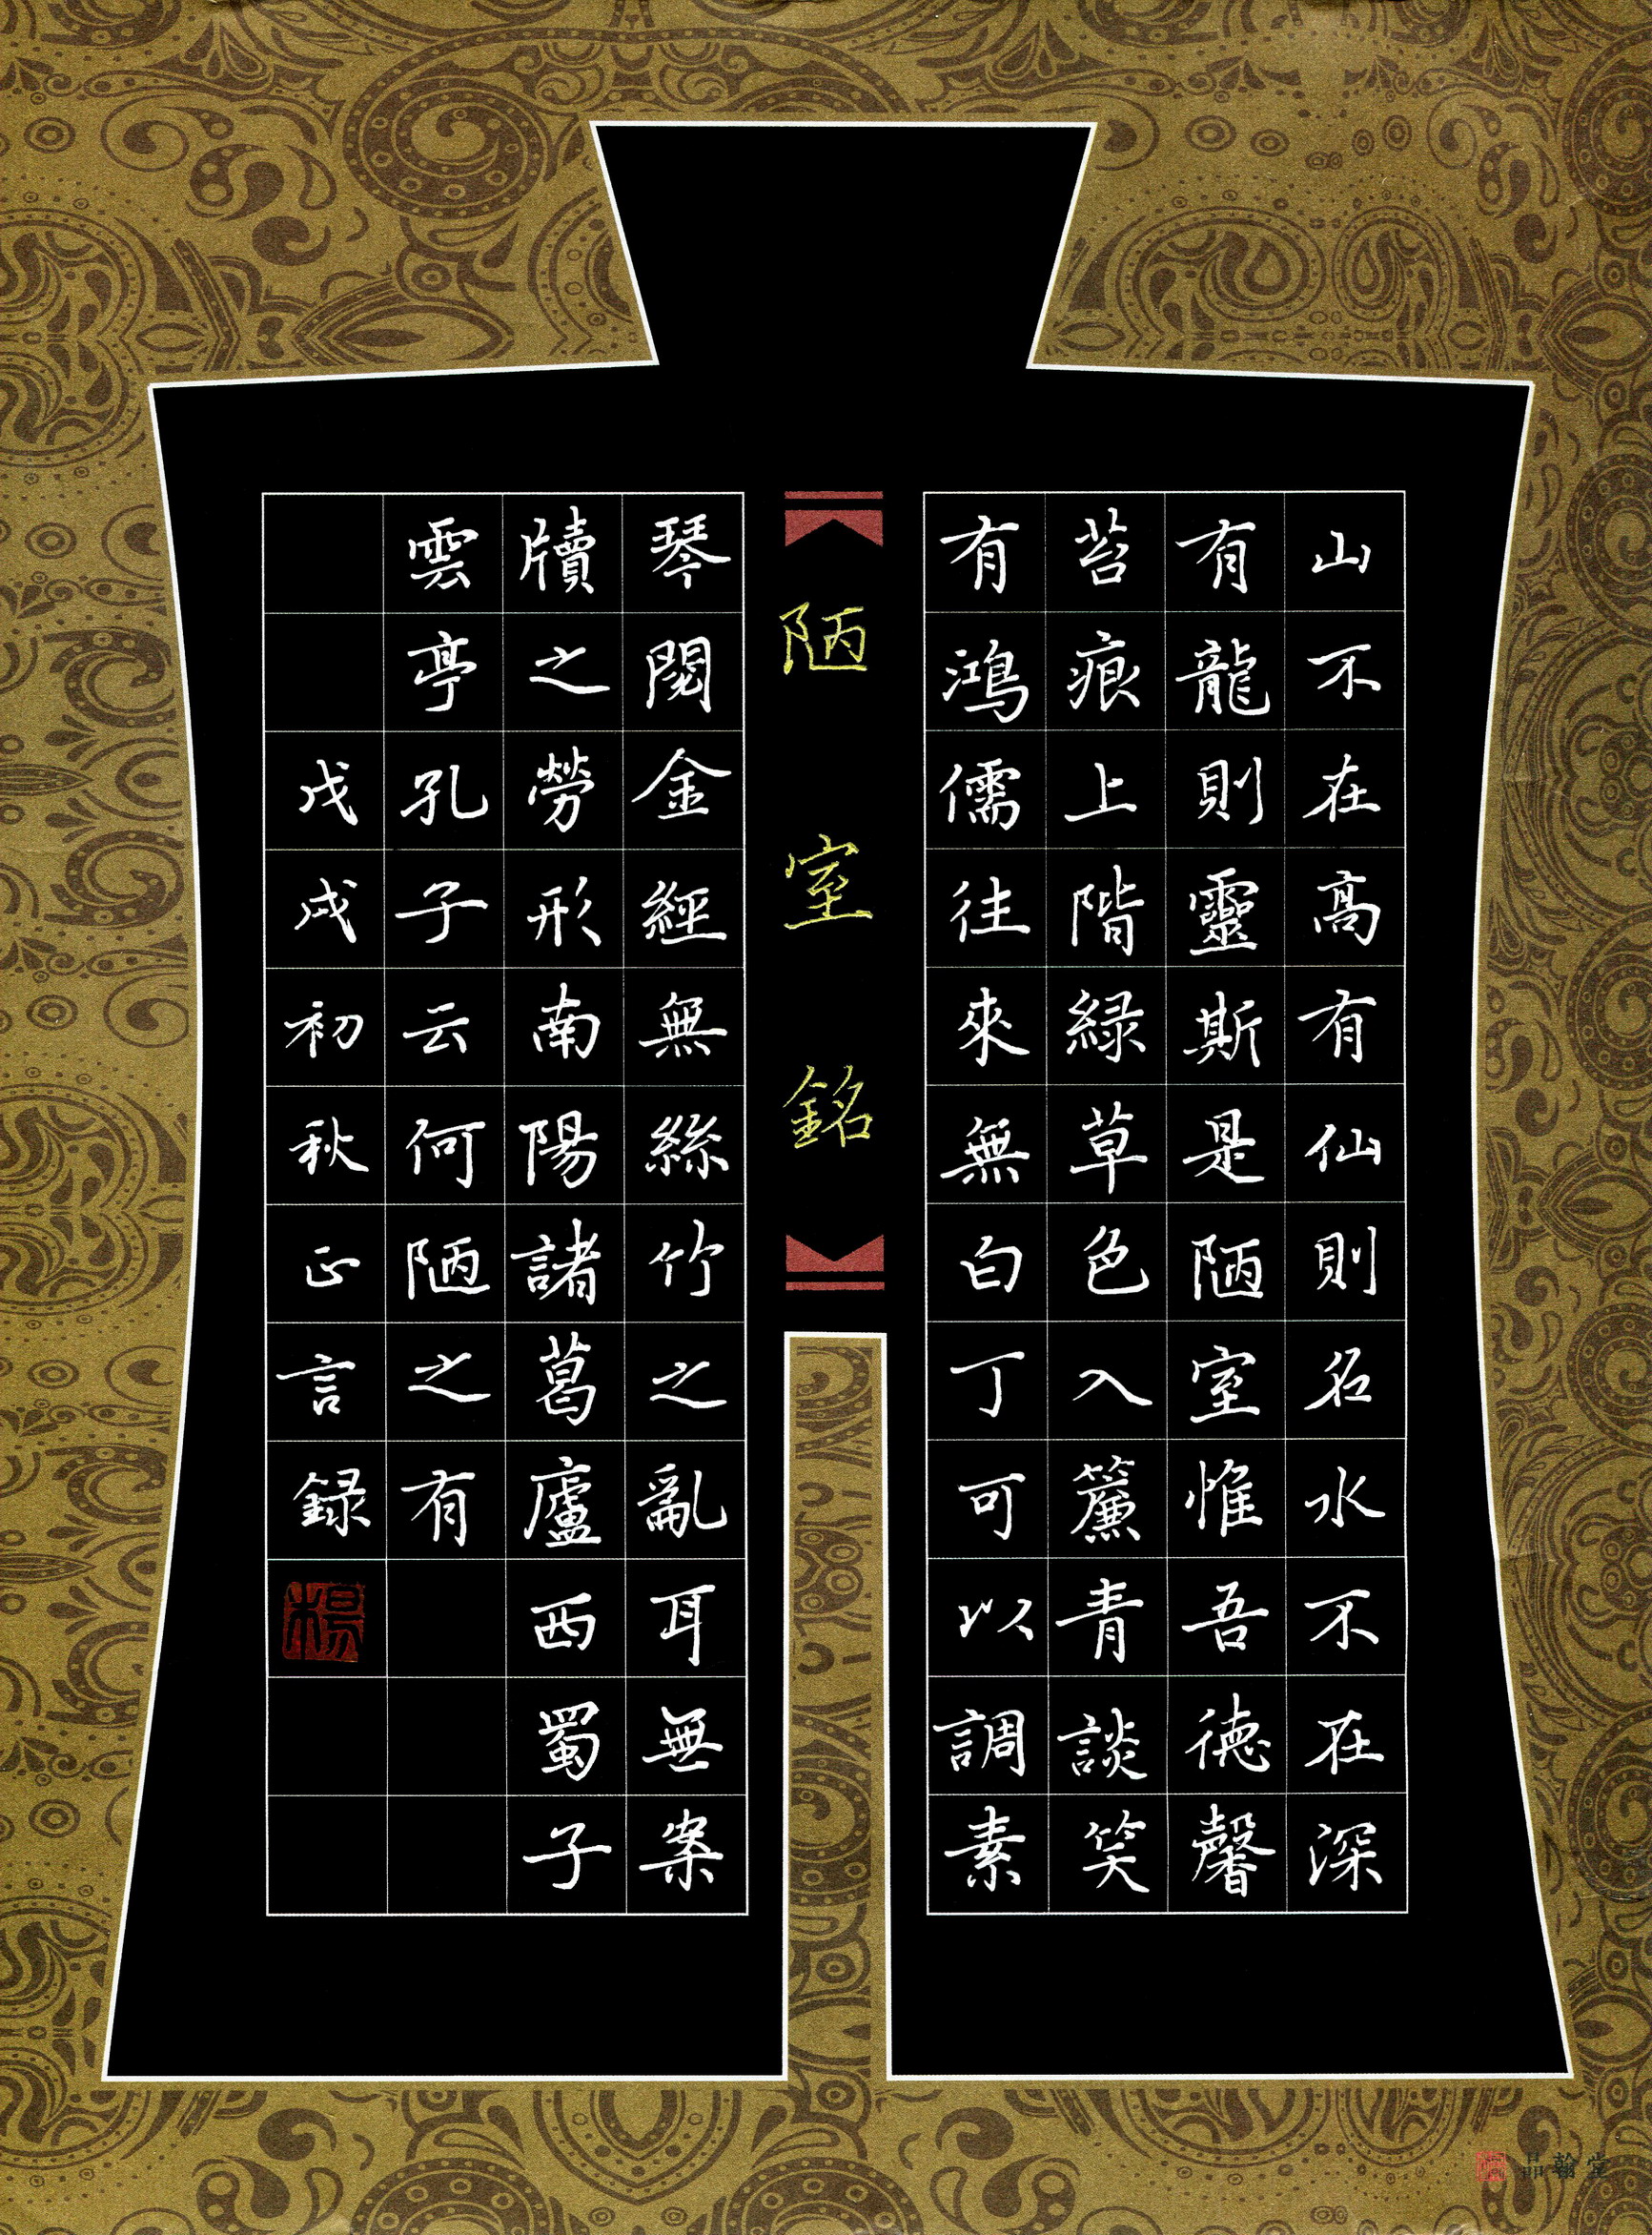 山不在高有仙則名水不在深
有龍則靈斯是陋室惟吾德馨
苔痕上階緑草色入簾青談笑
有鴻儒往來無白丁可以調素
陋室銘
琴閱金經無絲竹之亂耳無案
牘之勞形南陽諸葛廬西蜀子
雲亭孔子云何陋之有
戊戌初秋正言録
楊
品翰堂